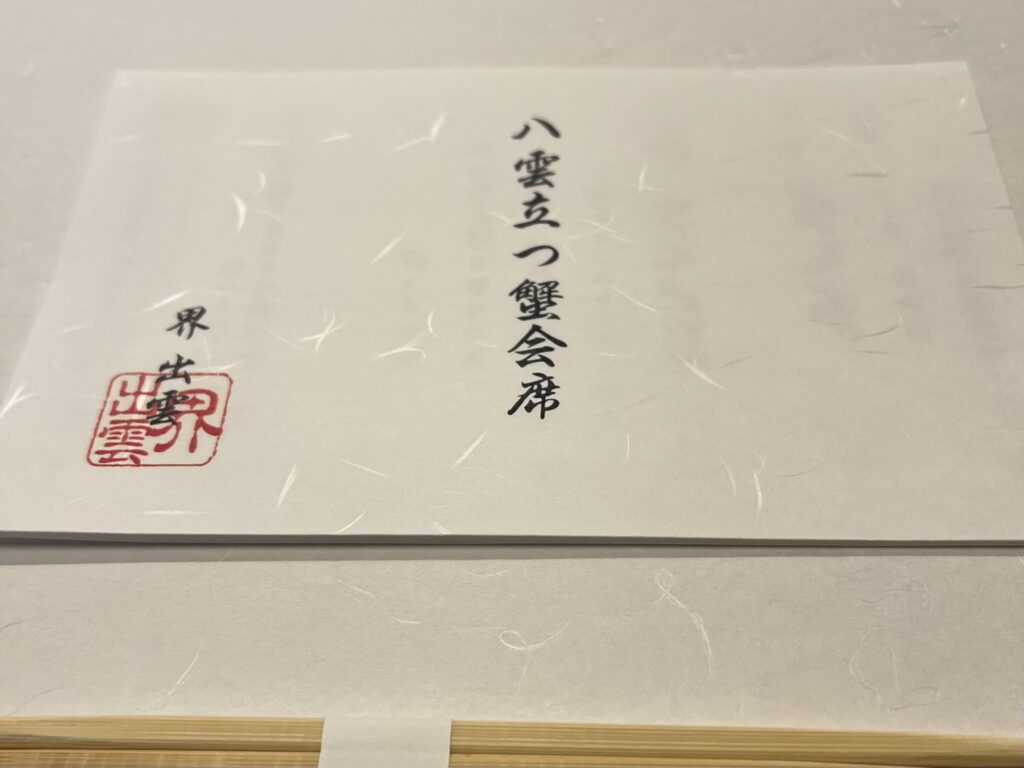 八雲立つ蟹会席
界 出雲
界出雲